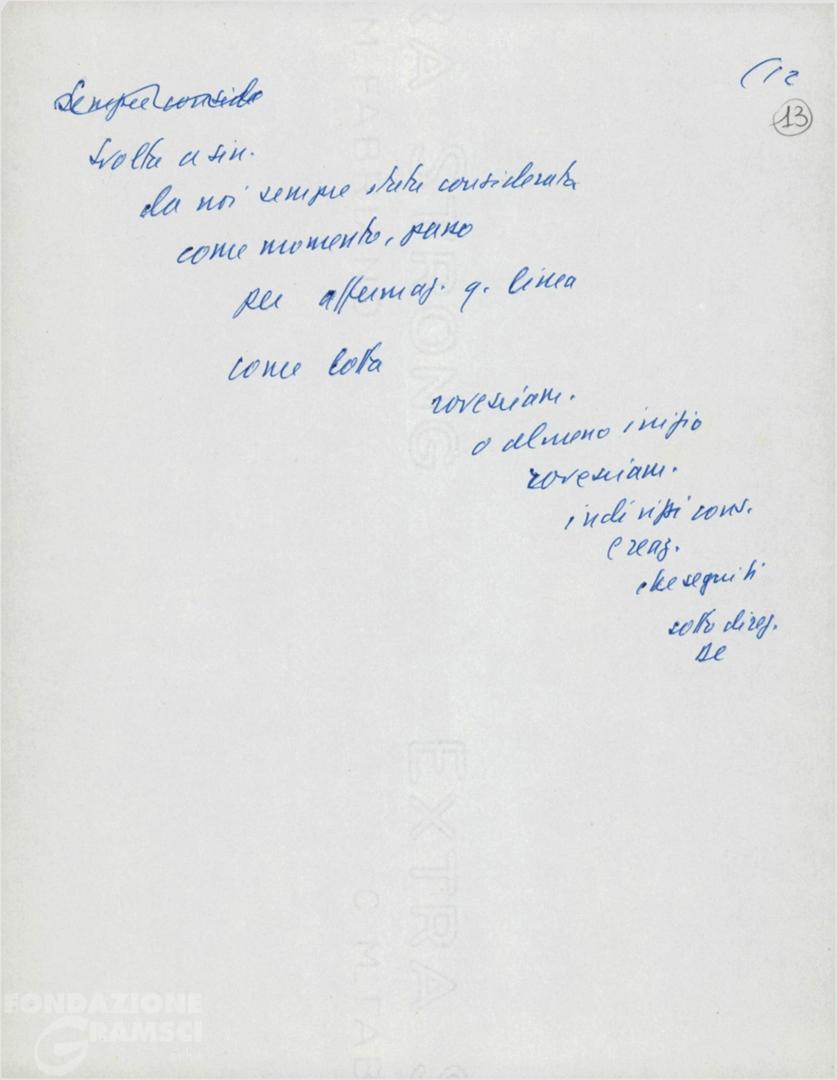 (12
13
Sempre conside
Svolta a sin.
da noi sempre stata considerata
come momento, passo
per affermaz. q. linea
come lotta
rovesciam.
o almeno inizio
rovesciam.
indirizzi cons.
e reaz.
che seguiti
sotto direz.
DC
EXTRA STRONG
FONDAZIONE
GRAMSCI